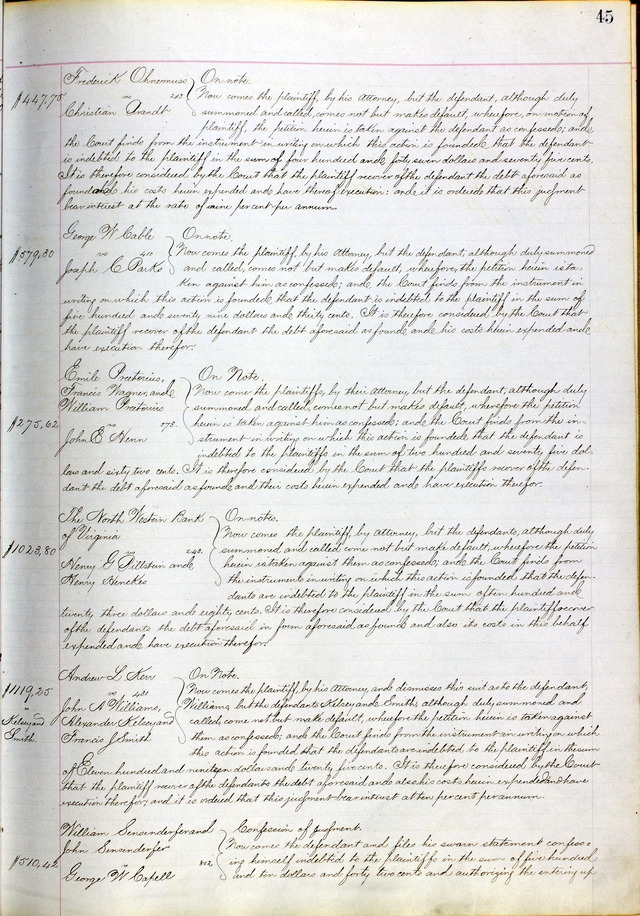 45
Frederick Ohnemuss
vs 203
Christian Brandt
$447,75
On note.
Now comes the plaintiff, by his Attorney, but the defendant, although duly
summoned and called, comes not but makes default, wherefore, on motion of
plaintiff, the petition herein is taken against the defendant as confessed; and
the Court finds from the instrument in writing on which this action is founded, that the defendant
is indebted to the plaintiff in the sum of four hundred and forty seven dollars and seventy five cents.
It is therefore considered by the Court that the plaintiff recover of the defendant the debt aforesaid as
found and his costs herein expended and have thereof execution: and it is ordered that this judgment
bear interest at the rate of nine percent per annum.
George W Cable
vs 410
Joseph C Parks
$579,30
On note.
Now comes the plaintiff, by his Attorney, but the defendant, although duly summoned
and called, comes not but makes default, wherefore, the petition herein is ta-
ken against him as confessed; and the Court finds from the instrument in
writing on which this action is founded that the defendant is indebted to the plaintiff in the sum of
five hundred and seventy nine dollars and thirty cents. It is therefore considered by the Court that
the plaintiff recover of the defendant the debt aforesaid as found and his costs herein expended and
have execution therefor.
Emile Pretorius,
Francis Wagner, and
William Pretorius
vs 475.
John E Henn
$275,62
On Note.
Now come the plaintiffs, by their Attorney but the defendant, although duly
summoned and called, comes not but makes default, wherefore the petition
herein is taken against him as confessed; and the Court finds from the in-
strument in writing on which this action is founded that the defendant is
indebted to the plaintiffs in the sum of two hundred and seventy five dol-
lars and sixty two cents. It is therefore considered by the Court that the plaintiffs recover of the defen-
dant the debt aforesaid as found and their costs herein expended and have execution therefor.
The North Western Bank
of Virginia
vs 243.
Henry G Tillstein and
Henry Henckes
$1023,80
On notes.
Now comes the plaintiff, by attorney, but the defendants, although duly
summoned and called come not but make default, wherefore the petition
herein is taken against them as confessed; and the Court finds from
the instruments in writing on which this action is founded that the defen-
dants are indebted to the plaintiff in the sum of ten hundred and
twenty three dollars and eighty cents. It is therefore considered by the Court that the plaintiff recover
of the defendants the debt aforesaid in form aforesaid as found and also its costs in this behalf
expended and have execution therefor.
Andrew L Kerr
vs 431
John A Williams,
Alexander Kelsey and
Francis J Smith
$1119,25
-
Kelsey and
Smith.
On Note.
Now comes the plaintiff, by his Attorney, and dismisses this suit as to the defendant,
Williams, but the defendants Kelsey and Smith, although duly summoned and
called, come not but make default, wherefore the petition herein is taken against
them as confessed; and the Court finds from the instrument in writing on which
this action is founded that the defendants are indebted to the plaintiff in the sum
of Eleven hundred and nineteen dollars and twenty five cents. It is therefore considered by the Court
that the plaintiff recover of the defendants the debt aforesaid and also his costs herein expended and have
execution therefor, and it is ordered that this judgment bear interest at ten percent per annum.
William Sensinderfer and
John Sensinderfer
vs 812,
George W Capell
$510,42
Confession of judgment.
Now comes the defendant and files his sworn statement confess-
ing himself indebted to the plaintiffs in the sum of five hundred
and ten dollars and forty two cents and authorizing the entering up